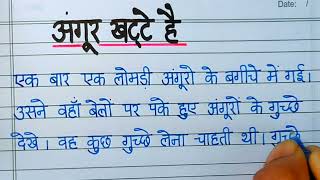 Date: /
अंगूर खट्टे है
एक बार एक लोमड़ी अंगूरो के बगीचे में गई।
उसने वहाँ बेलों पर पके हुए अंगूरों के गुच्छे
देखे। वह कुछ गुच्छे लेना चाहती थी। गुच्छे